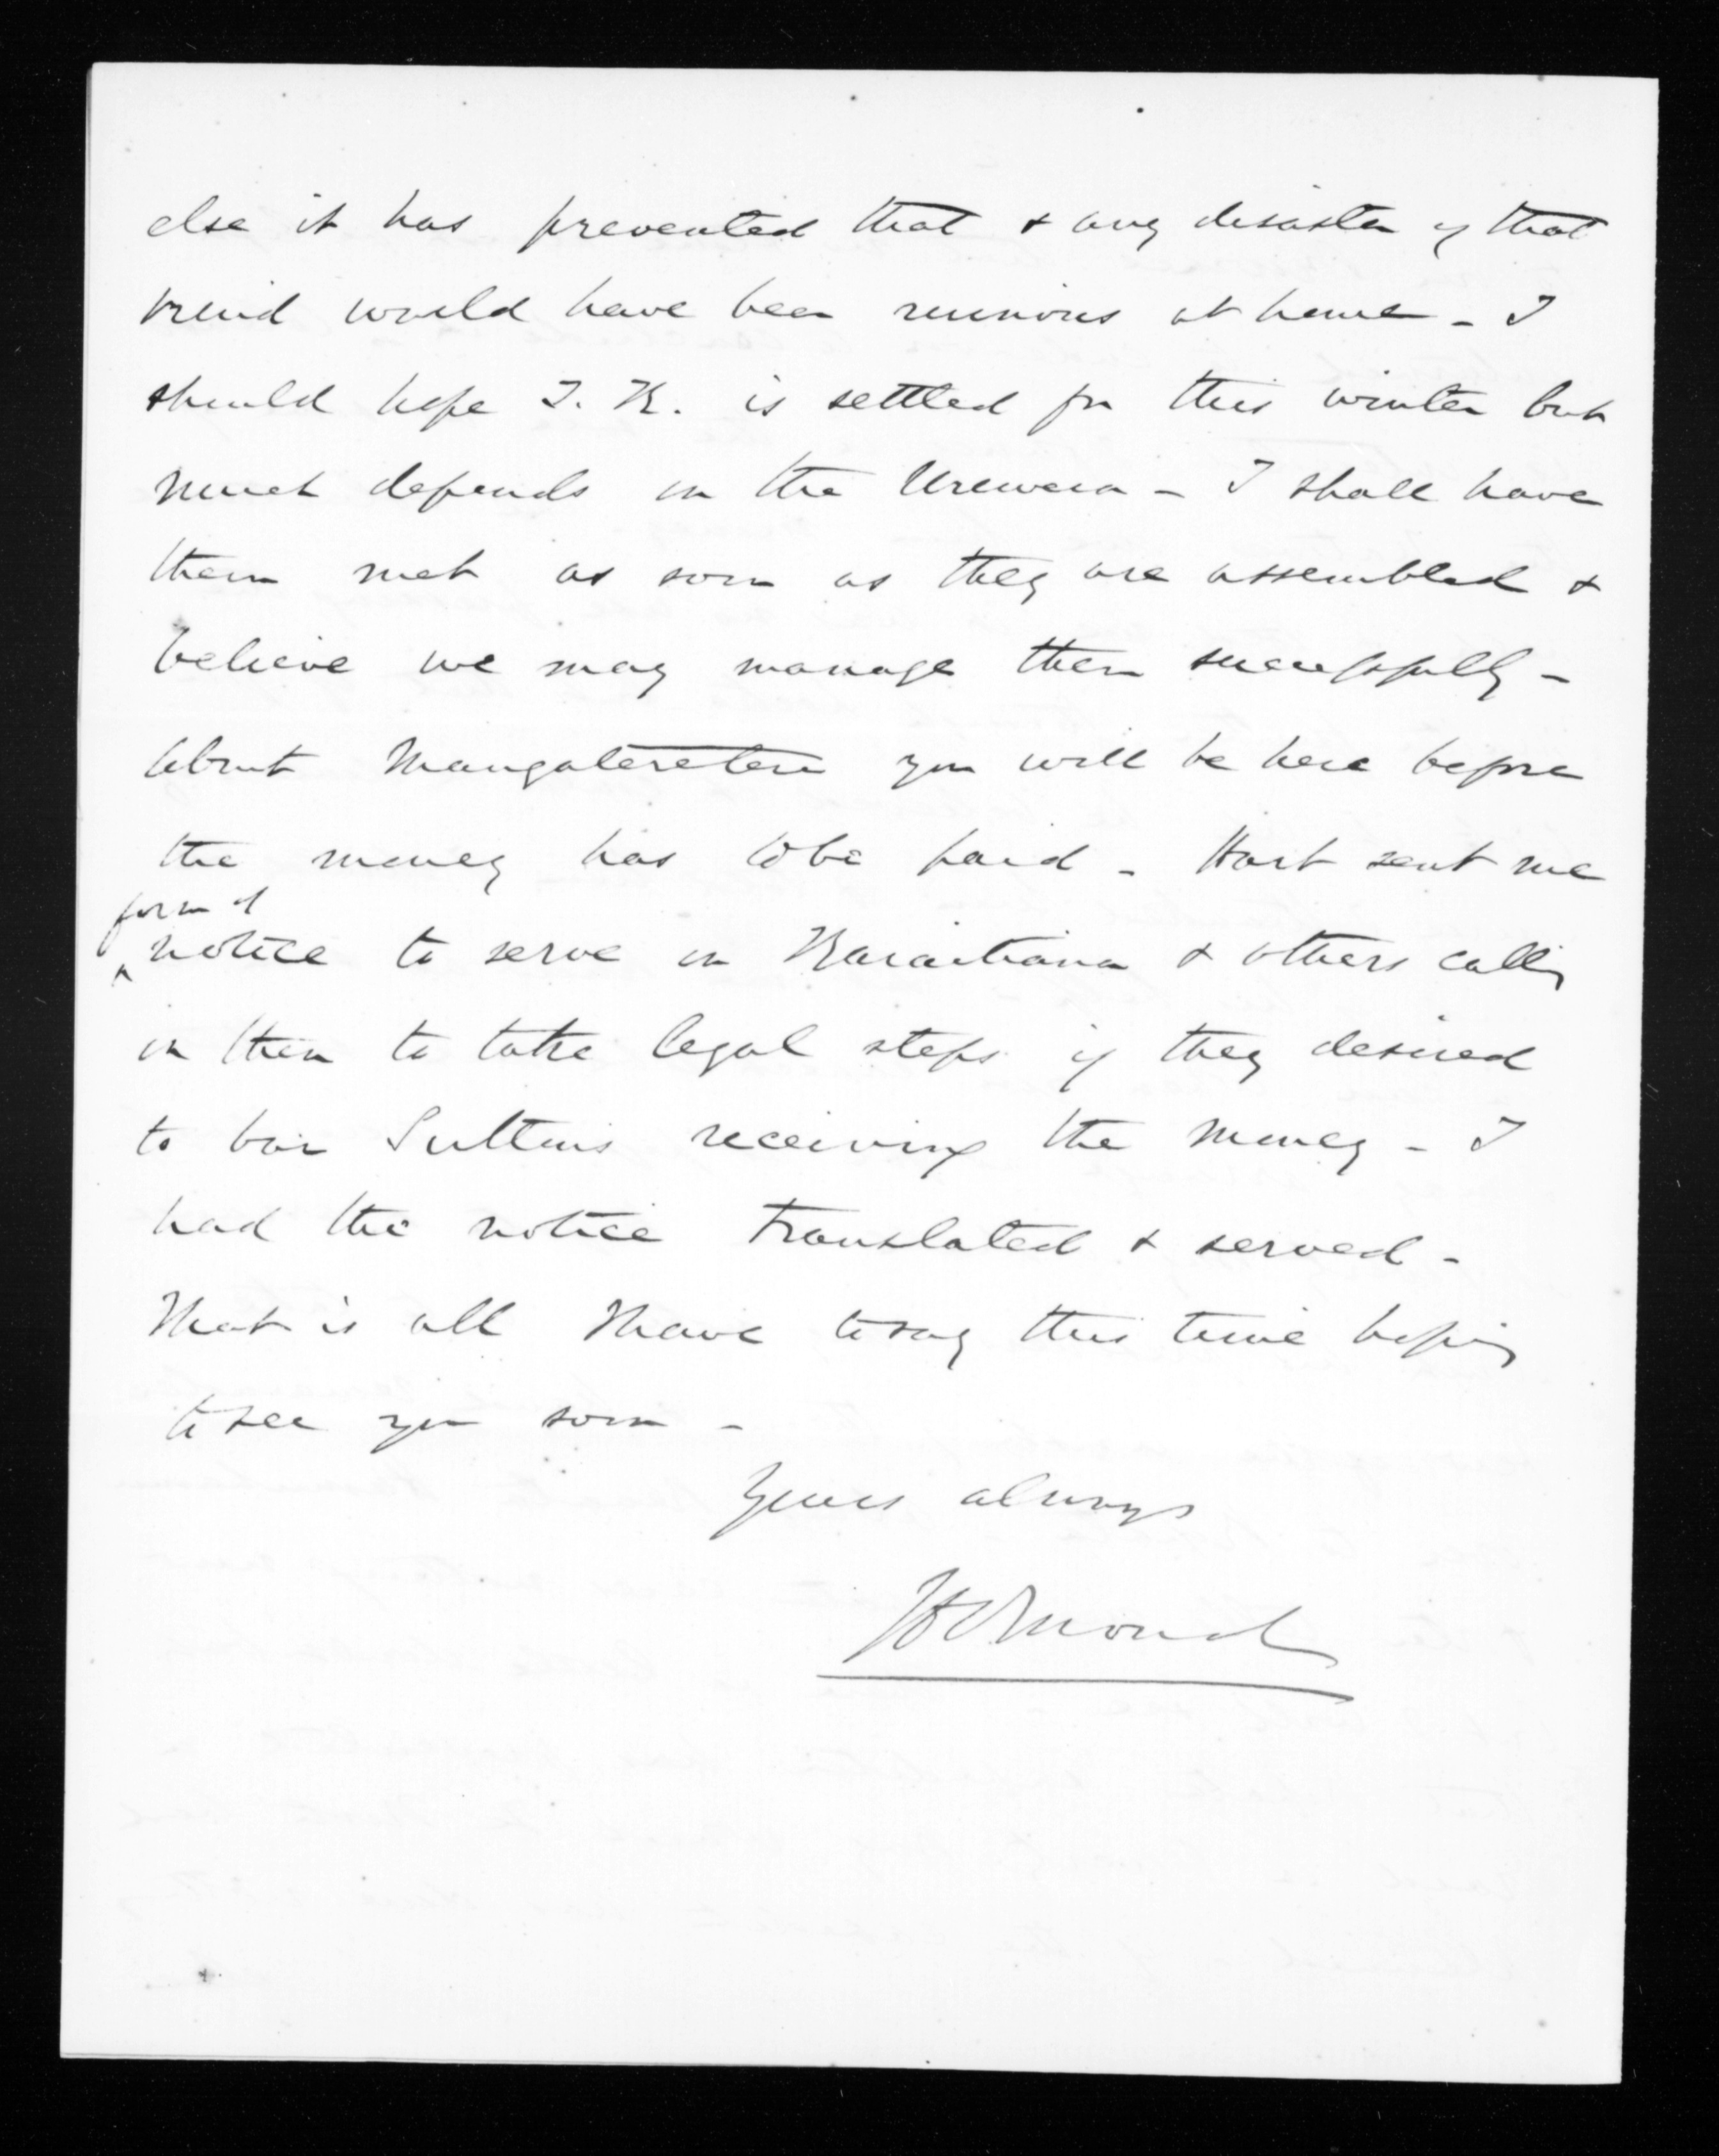 else it has prevented that & any disaster of that
kind would have been ruinous at home - I
should hope T. K. is settled for this winter but
much depends on the Urewera - I shall have
them met as soon as they are assembled &
believe we may manage them successfully -
about Mangateretere you will be here before
the money has to be paid - Hart sent me
form of
notice to serve on Karaitiana & others calling
on them to take legal steps if they desired
to bar Suttons receiving the money - I
had the notice translated & served -
That is all I have to say this time hoping
to see you soon -
Yours always
JD Ormond